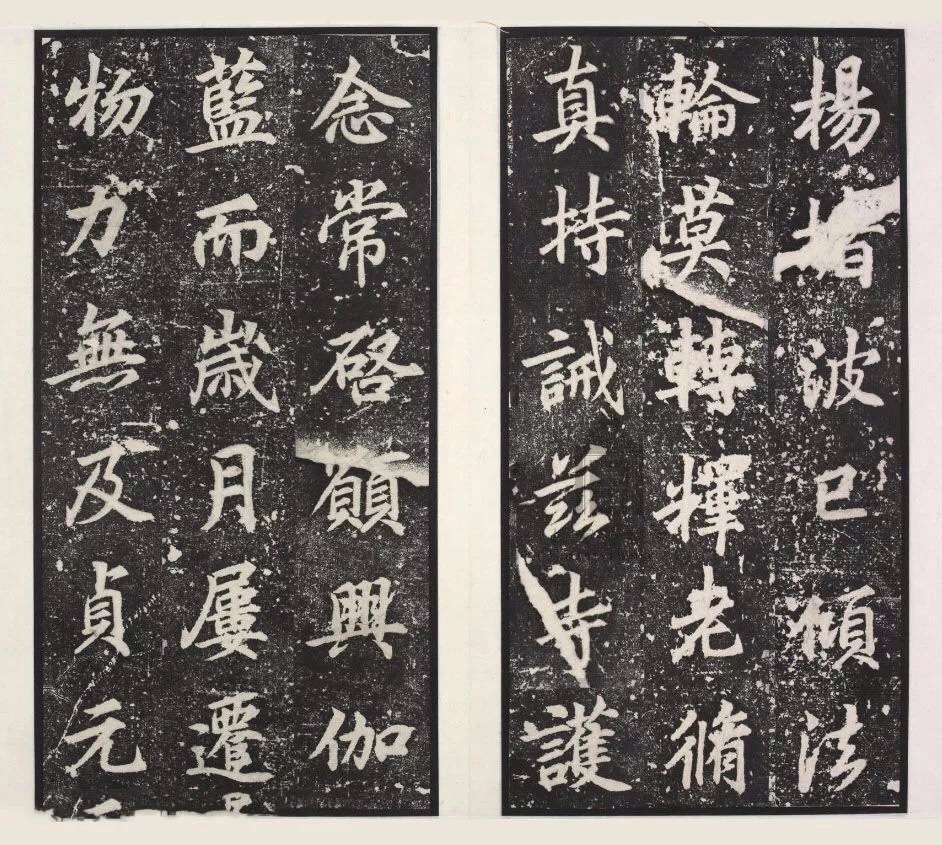 楊堵波已傾法
輪莫轉禪老脩
真持誡茲寺護
念常啓願興伽
藍而歲月屢遷
物力無及貞元